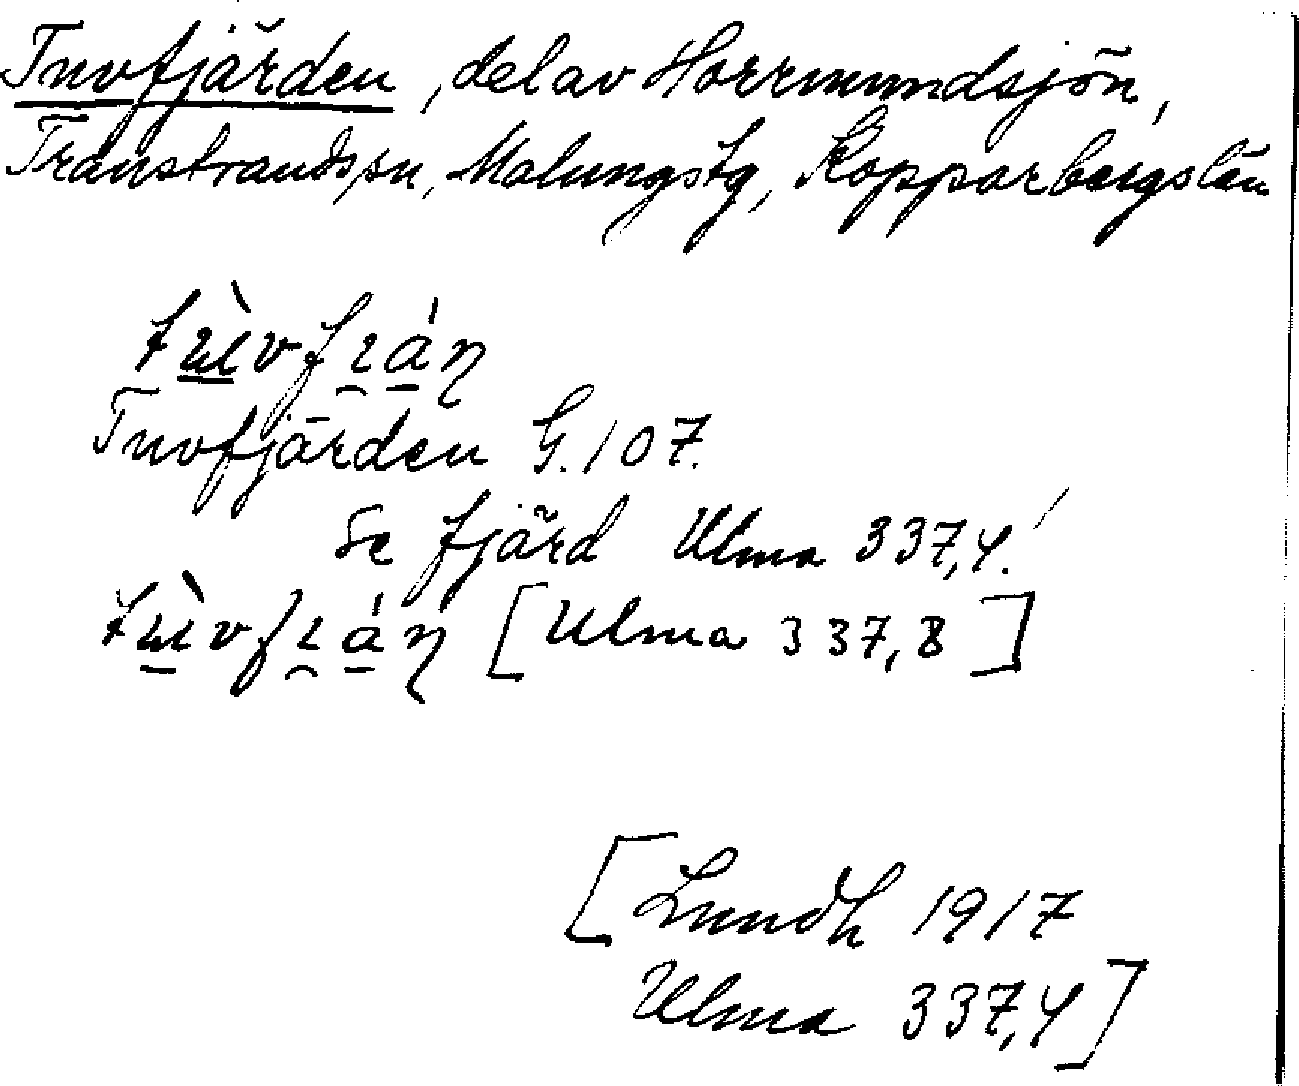 Tnvfjärden, del av Horrmundsjön,
Transtrands sn, Malungs tg, Kopparbergs län
Tnvfjärden G. 107.
Se fjärd Ulma 337,4.
[Ulma 337,8]
[Lundh 1917
Ulma 337,4]